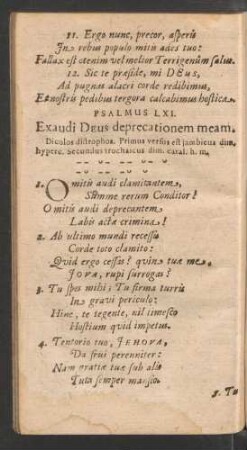 11. Ergo nunc, precor, asperis
In rebus populo mitis ades tuo:
Fallax est etenim vel melior Terrigenûm salus.
12. Sic te præside, mi DEus,
Ad pugnas alacri corde redibimus,
Et nostris pedibus tergora calcabimus hostica.
PSALMUS LXI.
Exaudi DEus deprecationem meam.
Dicolos distrophos. Primus versus est jambicus dim.
hyperc. Secundus trochaicus dim. catal. h. m.
1. O mitis audi clamitantem,
Summe rerum Conditor!
O mitis audi deprecantem
Labis acta crimina!
2. Ab ultimo mundi recessu
Corde toto clamito:
Quid ergo cessas? quin tuæ me,
JOVA, rupi surrogas?
3. Tu spes mihi; Tu firma turris
In gravi periculo:
Hinc, te tegente, nil timesco
Hostium quid impetus.
4. Tentorio tuo, JEHOVA,
Da frui perenniter:
Nam gratiæ tuæ sub alis
Tuta semper mansio.
5. Tu